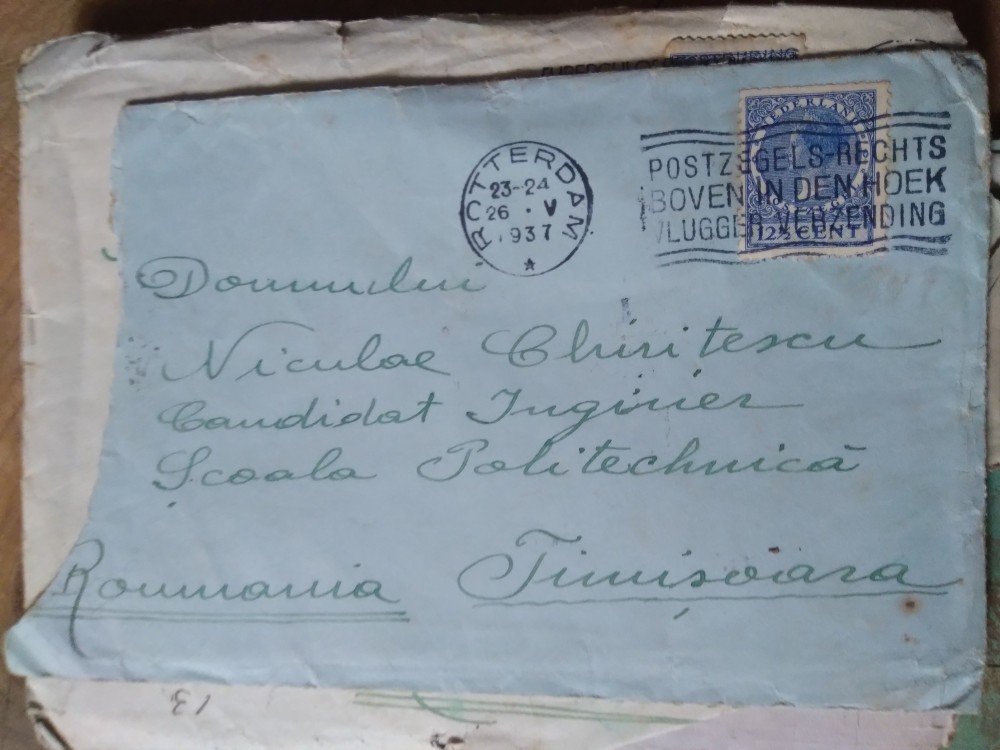 ROTTERDAM
23-24
26 · V
1937
NEDERLAND
POSTZEGELS-RECHTS
BOVEN IN DEN HOEK
VLUGGER VERZENDING
12½ CENT
Domnului
Niculae Chiritescu
Candidat Inginer
Școala Politechnică
Roumania Timișoara
13